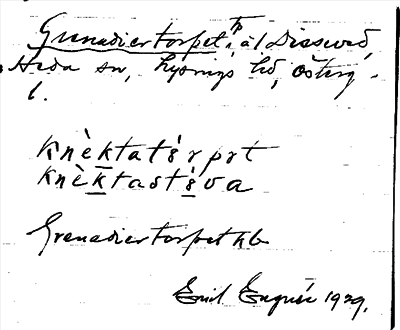 Grenadiertorpet, tp å äl Disevid,
Heda sn, Lysings hd, Österg.
l.
Knèktatörprt
Knèktastöva
Grenadiertorpet kb
Emil Engqvist 1929.